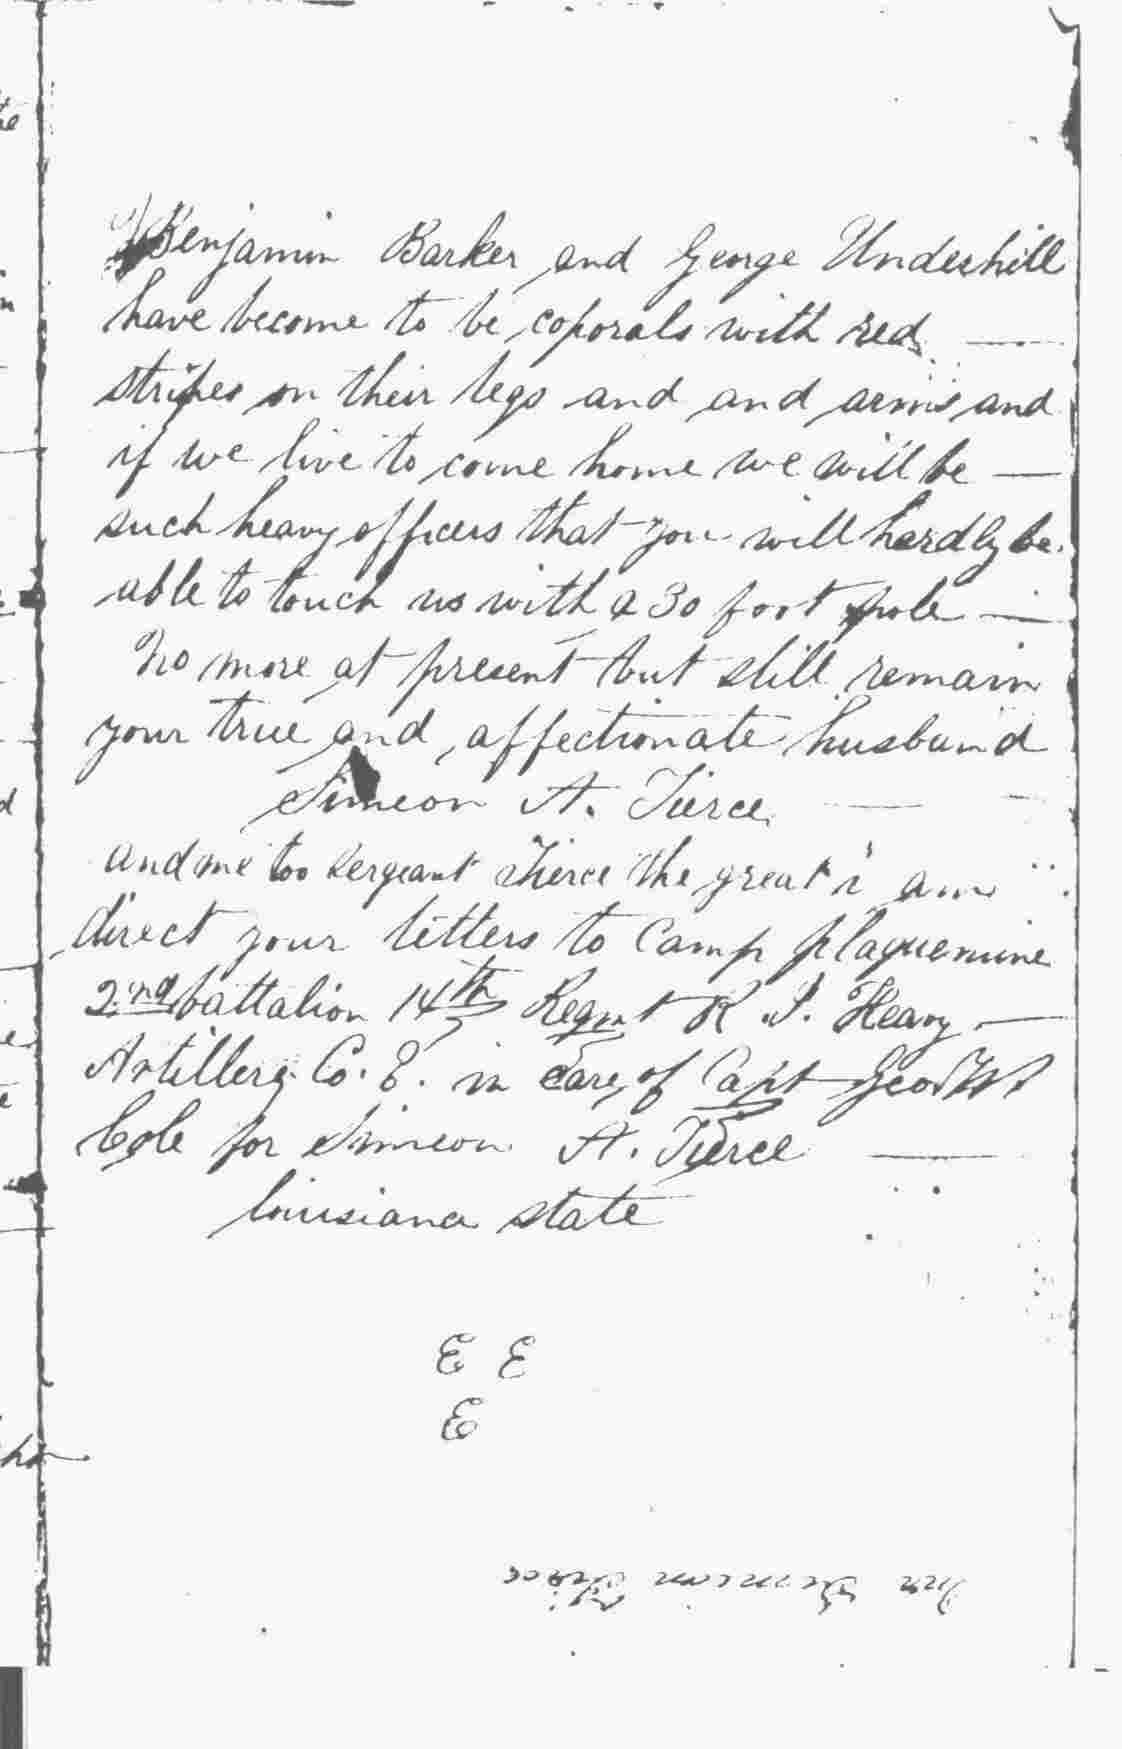 Benjamin Barker and George Underhill
have become to be coporals with red
stripes on their legs and and arms and
if we live to come home we will be —
such heavy officers that you will hardly be
able to touch us with a 30 foot pole —
No more at present but still remain
your true and affectionate husband
Simeon A. Tierce
and me too Sergeant Tierce the great i am
direct your letters to Camp plaquemine
2nd battalion 14th Regmt R. I. Heavy —
Artillery Co. E. in care of Capt Geo W
Cole for Simeon A. Tierce —
louisiana state
E E
E
Simeon Tierce